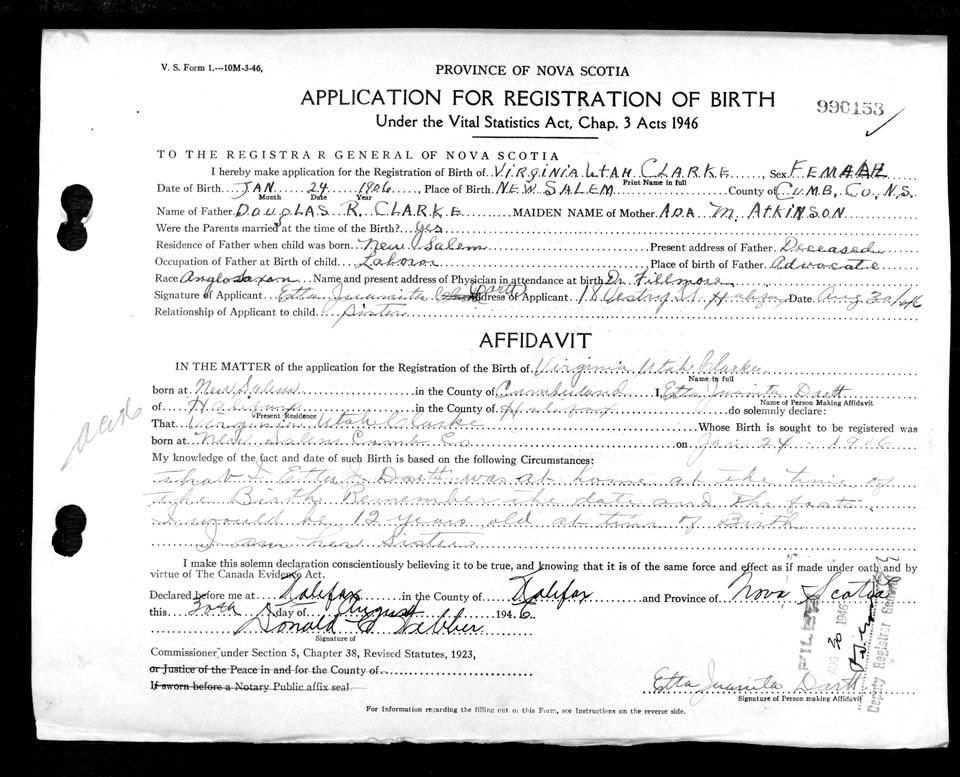 V. S. Form 1.---10M-3-46,
PROVINCE OF NOVA SCOTIA
APPLICATION FOR REGISTRATION OF BIRTH
990153
Under the Vital Statistics Act, Chap. 3 Acts 1946
TO THE REGISTRAR GENERAL OF NOVA SCOTIA
I hereby make application for the Registration of Birth of VIRGINIA UTAH CLARKE, Sex FEMALE
Print Name in full
Date of Birth JAN 24 1906, Place of Birth NEW SALEM County of CUMB. CO. N.S.
Month Date Year
Name of Father DOUGLAS R. CLARKE MAIDEN NAME of Mother ADA M. ATKINSON
Were the Parents married at the time of the Birth? yes
Residence of Father when child was born. New Salem Present address of Father. Deceased
Occupation of Father at Birth of child Labour Place of birth of Father Advocate
Race Anglo Saxon Name and present address of Physician in attendance at birth Dr. Fillmore
Signature of Applicant Etta Juanita Dartt Address of Applicant St. Halifax Date Aug 30/46
Relationship of Applicant to child sister
AFFIDAVIT
IN THE MATTER of the application for the Registration of the Birth of Virginia Utah Clarke
Name in full
born at New Salem in the County of Cumberland I, Etta Juanita Dartt
Name of Person Making Affidavit
of Halifax in the County of Halifax do solemnly declare:
Present Residence
That Virginia Utah Clarke Whose Birth is sought to be registered was
born at New Salem Cumb. Co on Jan 24 1906
My knowledge of the fact and date of such Birth is based on the following Circumstances:
that I Etta J Dartt was at home at the time of
the Birth Remember the date and the facts.
I would be 12 years old at time of Birth
I am her Sister
I make this solemn declaration conscientiously believing it to be true, and knowing that it is of the same force and effect as if made under oath and by
virtue of The Canada Evidence Act.
Declared before me at Halifax in the County of Halifax and Province of Nova Scotia
this 30th day of August 1946
Donald Webber
Signature of
Commissioner under Section 5, Chapter 38, Revised Statutes, 1923,
or Justice of the Peace in and for the County of
If sworn before a Notary Public affix seal
Etta Juanita Dartt
Signature of Person making Affidavit
FILED
AUG 30 1946
Deputy Registrar General
For Information regarding the filling out of this Form, see Instructions on the reverse side.